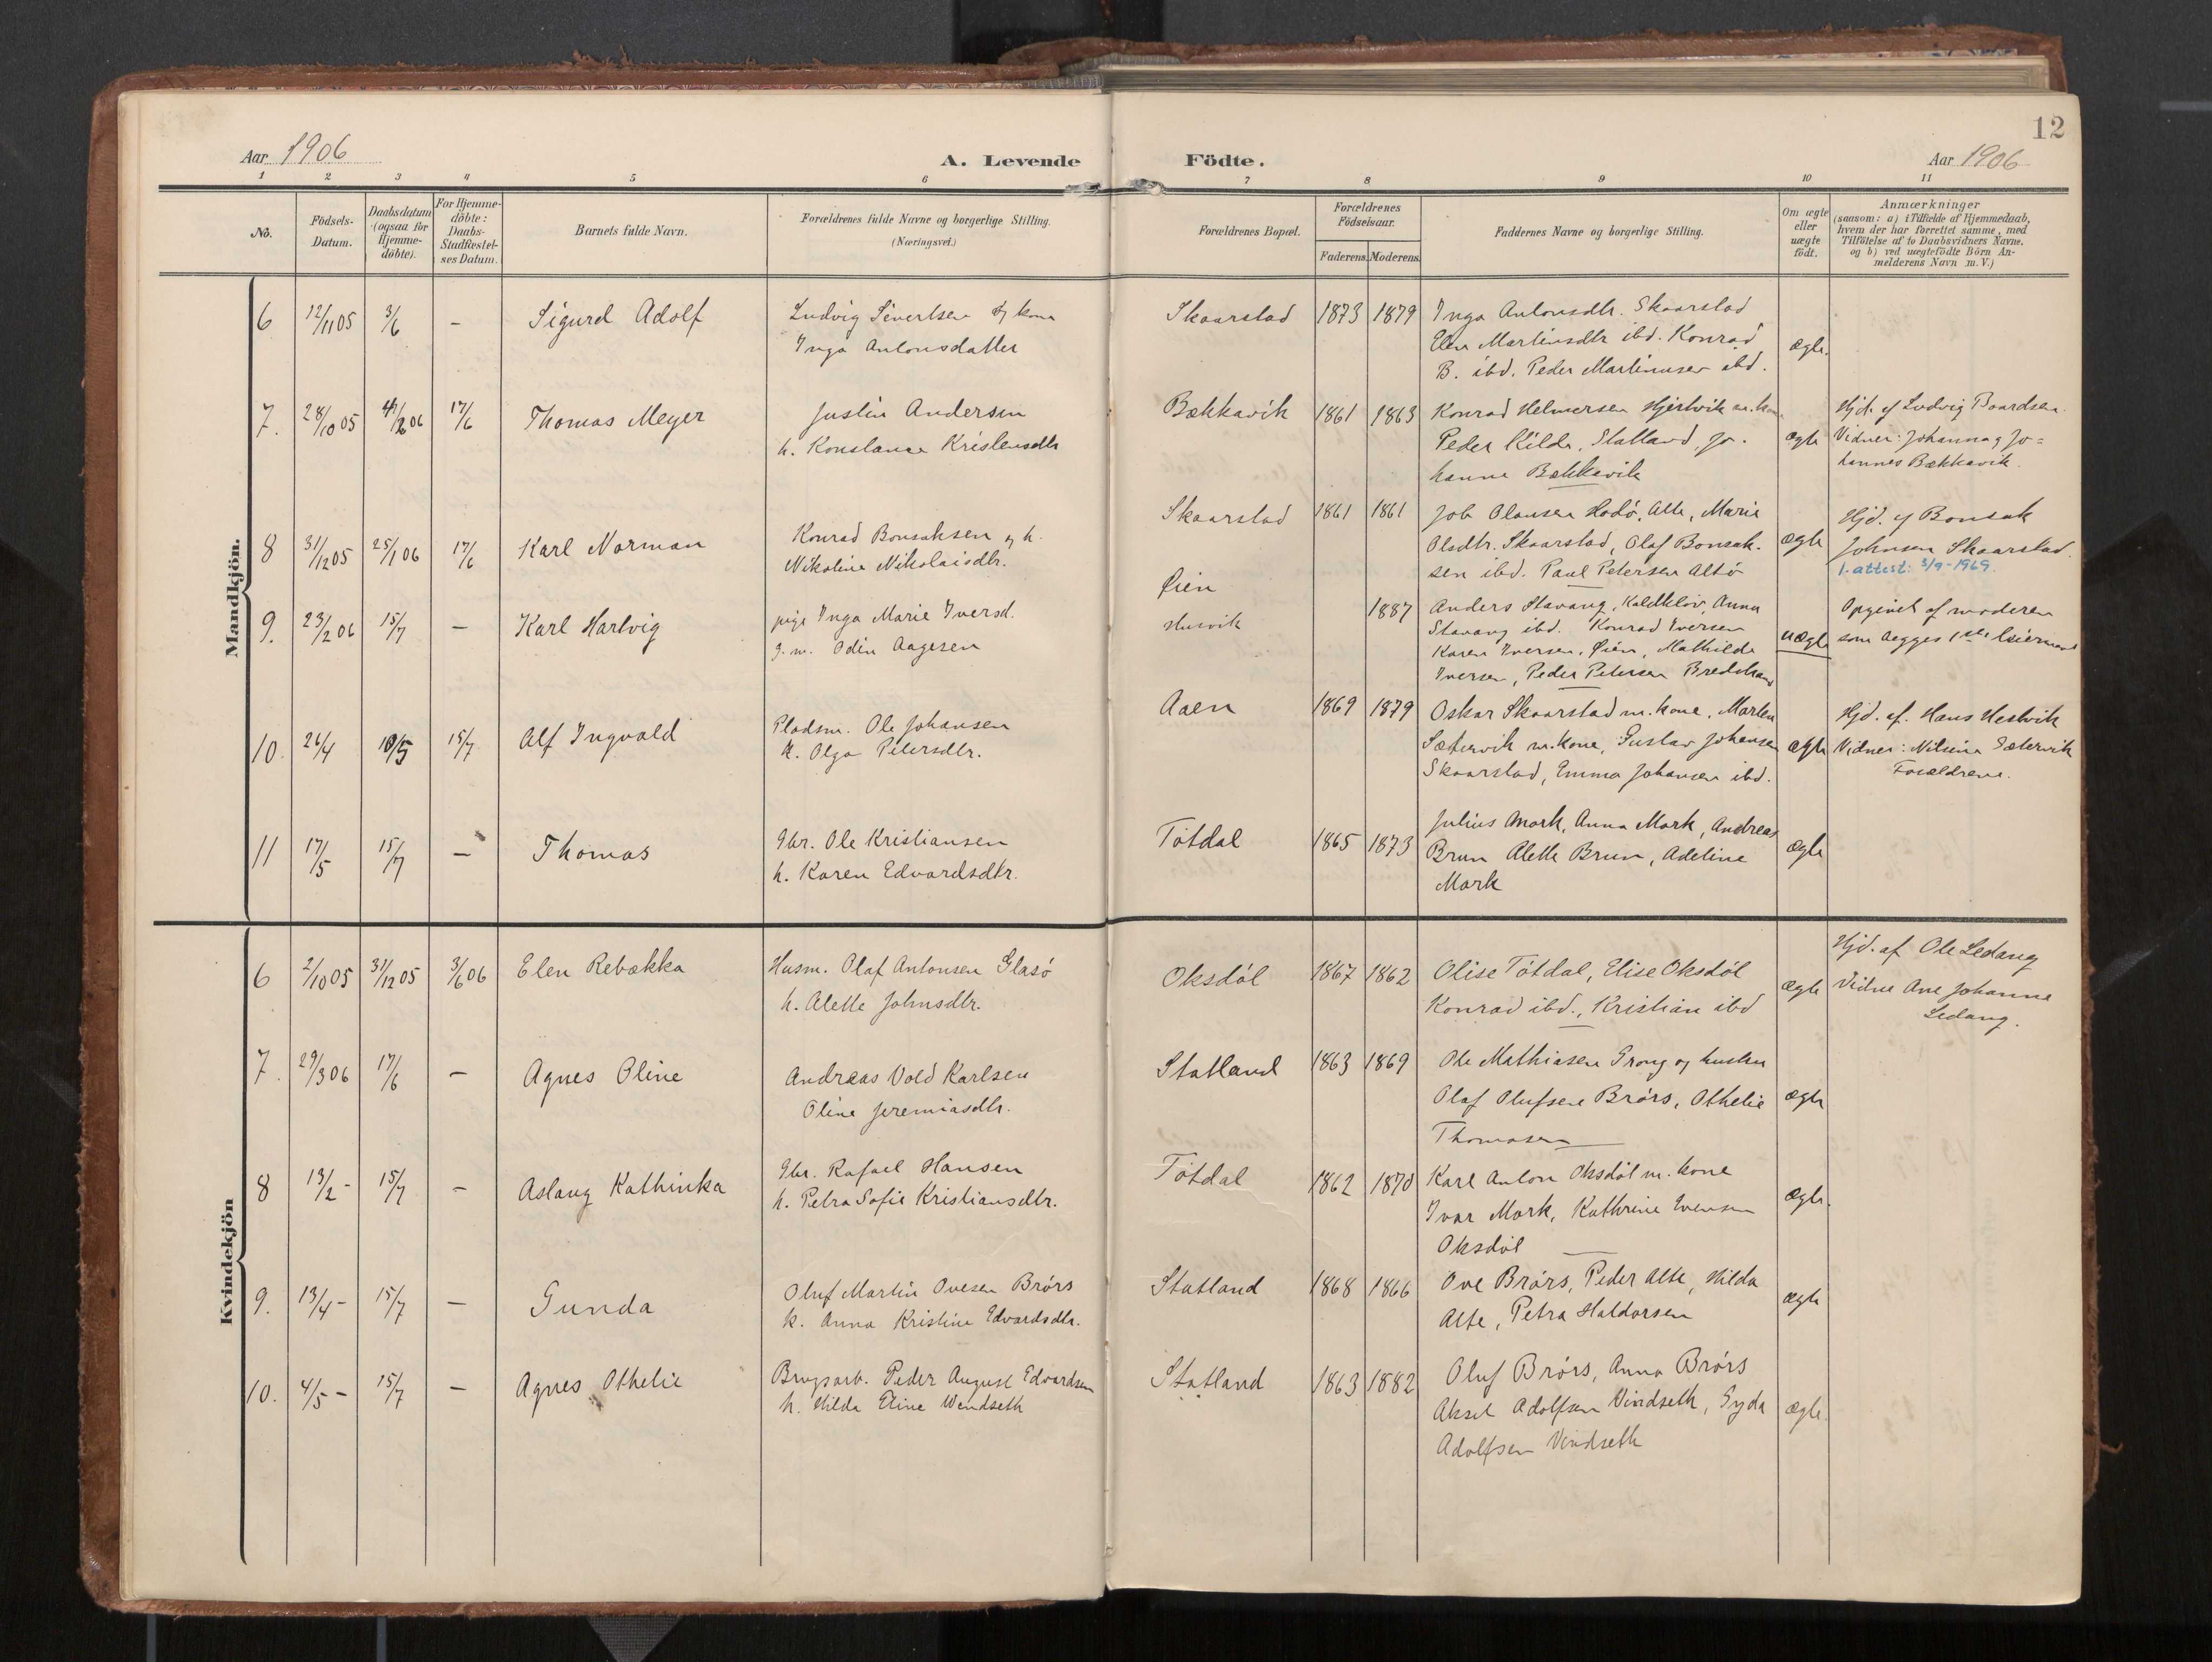 12
Aar 1906
A. Levende Födte.
Aar 1906
1 2 3 4 5 6 7 8 9 10 11
No.
Födsels-
Datum.
Daabsdatum
(ogsaa for
Hjemme-
döbte).
For Hjemme-
döbte:
Daabs-
Stadfæstel-
ses Datum.
Barnets fulde Navn.
Forældrenes fulde Navne og borgerlige Stilling.
(Næringsvei.)
Forældrenes Bopæl.
Forældrenes
Födselsaar.
Faderens. Moderens.
Faddernes Navne og borgerlige Stilling.
Om ægte
eller
uægte
födt.
Anmærkninger
(saasom: a) i Tilfælde af Hjemmedaab,
hvem der har forrettet samme, med
Tilföielse af to Daabsvidners Navne,
og b) ved uægtefödte Börn An-
melderens Navn m. V.)
Mandkjön.
6 12/11 05 3/6 – Sigurd Adolf
Ludvig Sivertsen og kone
Inga Antonsdatter
Skaarstad 1873 1879
Inga Antonsdtr. Skaarstad
Elen Martinsdtr ibd. Konrad
B. ibd. Peder Martinusen ibd.
ægte.
7. 28/10 05 4/2 06 17/6 Thomas Meyer
Justin Andersen
h. Konstance Kristensdtr
Bækkavik 1861 1863
Konrad Helmersen Hjertvik m. kone
Peder Kilde, Statland, Jo-
hanna Bækkavik
ægte
Hjd. af Ludvig Baardsen.
Vidner: Johanna og Jo=
hannes Bækkavik.
8 31/12 05 25/1 06 17/6 Karl Norman
Konrad Bonsaksen og h.
Nikoline Nikolaisdtr.
Skaarstad 1861 1861
Job Olausen Hodø, Alte, Marie
Olsdtr. Skaarstad, Olaf Bonsak-
sen ibd. Paul Petersen Altø
ægte
Hjd. af Bonsak
Johnsen Skaarstad.
1. attest: 3/9-1969.
9. 23/2 06 15/7 – Karl Hartvig
pige Inga Marie Iversd.
g. m. Odin Aagesen
Øien
Husvik
1887
Anders Stavang, Kaldkløv, Anna
Stavang ibd. Konrad Iversen
Karen Iversen, Øien, Mathilde
Iversen, Peder Petersen
uægte
Opgivet af moderen
som begges 1ste leiermaal
10. 26/4 10/5 15/7 Alf Ingvald
Pladsm. Ole Johansen
k. Olga Petersdtr.
Aaen 1869 1879
Oskar Skaarstad m. kone, Morten
Sætervik m. kone, Gustav Johansen
Skaarstad, Emma Johansen ibd.
ægte
Hjd. af. Hans Hestvik
Vidner: Nilsina Sætervik
Forældrene.
11 17/5 15/7 – Thomas
Gbr. Ole Kristiansen
h. Karen Edvardsdtr.
Tötdal 1865 1873
Julius Mork, Anna Mork, Andreas
Brun Alette Brun, Adeline
Mork
ægte
Kvindekjön
6 2/10 05 31/12 05 3/6 06 Elen Rebækka
Husm. Olaf Antonsen Glasø
h. Alette Johnsdtr.
Oksdöl 1867 1862
Olise Tötdal, Elise Oksdöl
Konrad ibd., Kristian ibd
ægte
Hjd. af Ole Ledang
Vidne Ane Johanna
Ledang.
7. 29/3 06 17/6 – Agnes Oline
Andreas Vold Karlsen
Oline Jeremiasdtr.
Statland 1863 1869
Ole Mathiasen Grong og hustru
Olaf Olufsen Brörs, Othelie
Thomasen
ægte
8 13/2 - 15/7 – Aslaug Kathinka
Gbr. Rafael Hansen
h. Petra Sofie Kristiansdtr.
Tötdal 1862 1870
Karl Anton Oksdöl m. kone
Ivar Mork, Kathrine Evensen
Oksdöl
ægte.
9. 13/4 - 15/7 – Gunda
Oluf Martin Ovesen Brörs
k. Anna Kristine Edvardsdtr.
Statland 1868 1866
Ove Brörs, Peder Alte, Hilda
Alte, Petra Haldorsen
ægte
10. 4/5 - 15/7 – Agnes Othelie
Brugsarb. Peder August Edvardsen
h. Hilda Eline Wendseth
Statland 1863 1882
Oluf Brörs, Anna Brörs
Aksel Adolfsen Vindseth, Gyda
Adolfsen Vindseth
ægte.